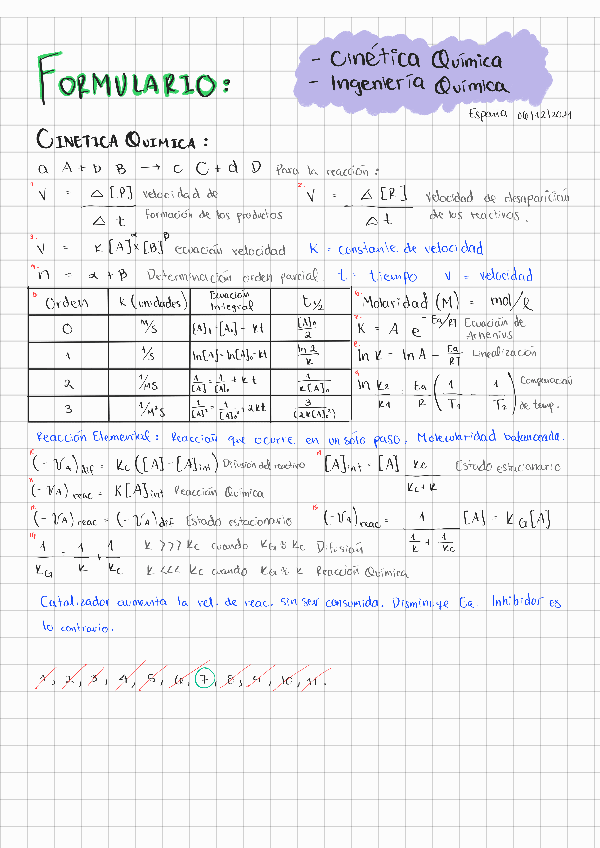 FORMULARIO:
- Cinética Química
- Ingeniería Química
España 06/12/2021
CINETICA QUIMICA:
a A + b B → c C + d D Para la reacción:
1. V = Δ[P] / Δt velocidad de formación de los productos
2. V = Δ[R] / Δt velocidad de desaparición de los reactivos.
3. V = K [A]^α x [B]^β ecuación velocidad K = constante de velocidad
4. n = α + B Determinación orden parcial t = tiempo V = velocidad
5. Orden K (unidades) Ecuación Integral t 1/2
0 M/S [A]t = [A]o - Kt [A]o / 2
1 1/S ln[A] = ln[A]o - Kt ln 2 / K
2 1/MS 1/[A] = 1/[A]o + Kt 1 / K[A]o
3 1/M²S 1/[A]² = 1/[A]o² + 2Kt 3 / (2K[A]o²)
6. Molaridad (M) = mol/l
7. K = A e^-Ea/RT Ecuación de Arhenius
8. ln K = ln A - Ea/RT Linealización
9. ln K2/K1 = Ea/R (1/T1 - 1/T2) Comparación de temp.
Reacción Elemental: Reacción que ocurre en un sólo paso. Molecularidad balanceada.
(-VA)dif = Kc ([A] - [A]int) Difusión del reactivo
[A]int = [A] Kc / Kc + K Estado estacionario
(-VA)reac = K[A]int Reacción Química
(-VA)reac = (-VA)dif Estado estacionario
(-VA)reac = 1 / 1/K + 1/Kc [A] = KG[A]
1/KG = 1/K + 1/Kc K >>> Kc cuando KG ≈ Kc Difusión
K <<< Kc cuando KG ≈ K Reacción Química
Catalizador aumenta la vel. de reac. sin ser consumida. Disminuye Ea. Inhibidor es
lo contrario.
1, 2, 3, 4, 5, 6, 7, 8, 9, 10, 11.